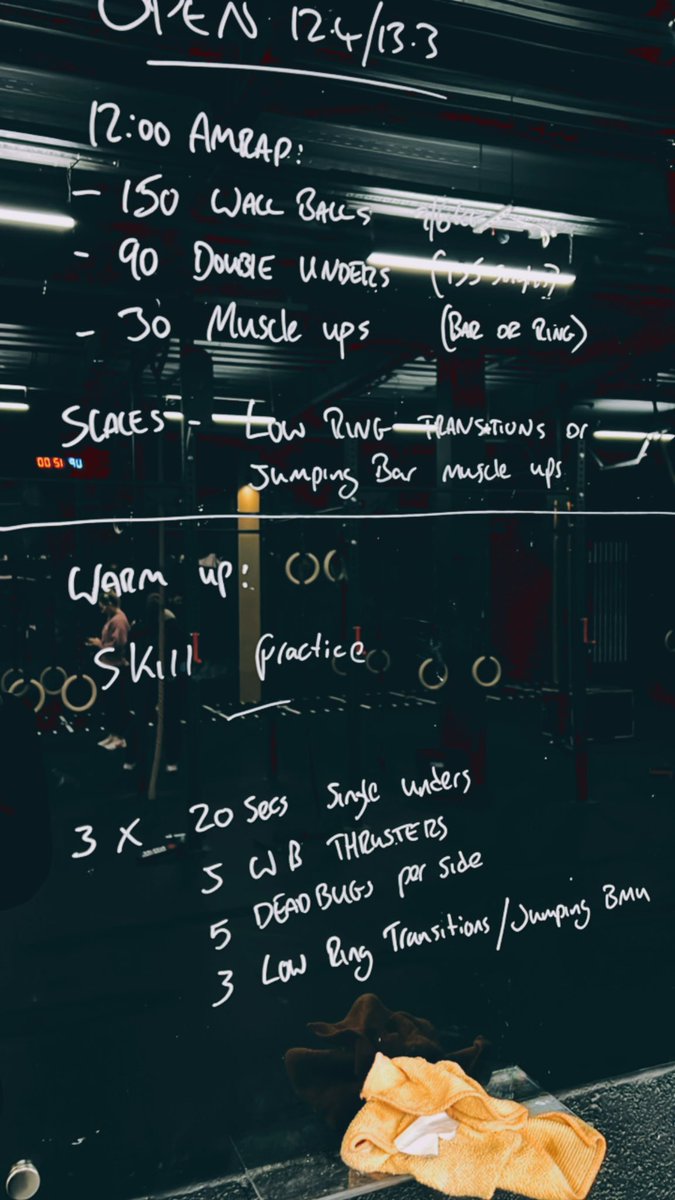 OPEN 12.4/13.3
12:00 AMRAP:
- 150 WALL BALLS
- 90 DOUBLE UNDERS
- 30 Muscle ups (BAR OR RING)
SCALES - LOW RING TRANSITIONS or
Jumping Bar muscle ups
00:51
WARM up:
Skill practice
3 X 20 Secs Single unders
5 WB THRUSTERS
5 DEADBUGS per side
3 Low Ring Transitions/Jumping BMU